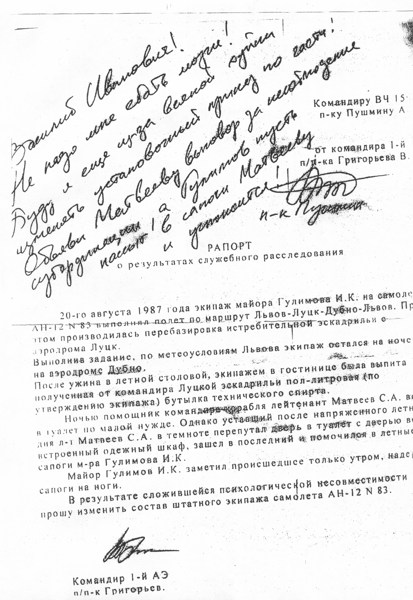 Василий Иванович!
Не надо мне ебать мозги!
Буду я ещё из-за всякой хуйни
изменять установочный приказ по части!
Объяви Матвееву выговор за несоблюдение
субординации, а Гулимов пусть
нассыт в сапоги Матвееву
и успокоится!
п-к Пушмин
Командиру ВЧ 15
п-ку Пушмину А
от командира 1-й
п/п-ка Григорьева В.
РАПОРТ
о результатах служебного расследования
20-го августа 1987 года экипаж майора Гулимова И.К. на само
АН-12 N 83 выполнял полет по маршруту Львов-Луцк-Дубно-Львов. Пр
этом производилась перебазировка истребительной эскадрильи с
аэродрома Луцк.
Выполнив задание, по метеоусловиям Львова экипаж остался на ноче
на аэродроме Дубно.
После ужина в летной столовой, экипажем в гостинице была выпита
полученная от командира Луцкой эскадрильи пол-литровая (по
утверждению экипажа) бутылка технического спирта.
Ночью помощник командира корабля лейтенант Матвеев С.А. в
в туалет по малой нужде. Однако уставший после напряженного летн
дня л-т Матвеев С.А. в темноте перепутал дверь в туалет с дверью в
встроенный одежный шкаф, зашел в последний и помочился в летные
сапоги м-ра Гулимова И.К.
Майор Гулимов И.К. заметил происшедшее только утром, наде
сапоги на ноги.
В результате сложившейся психологической несовместимости
прошу изменить состав штатного экипажа самолета АН-12 N 83.
Командир 1-й АЭ
п/п-к Григорьев.